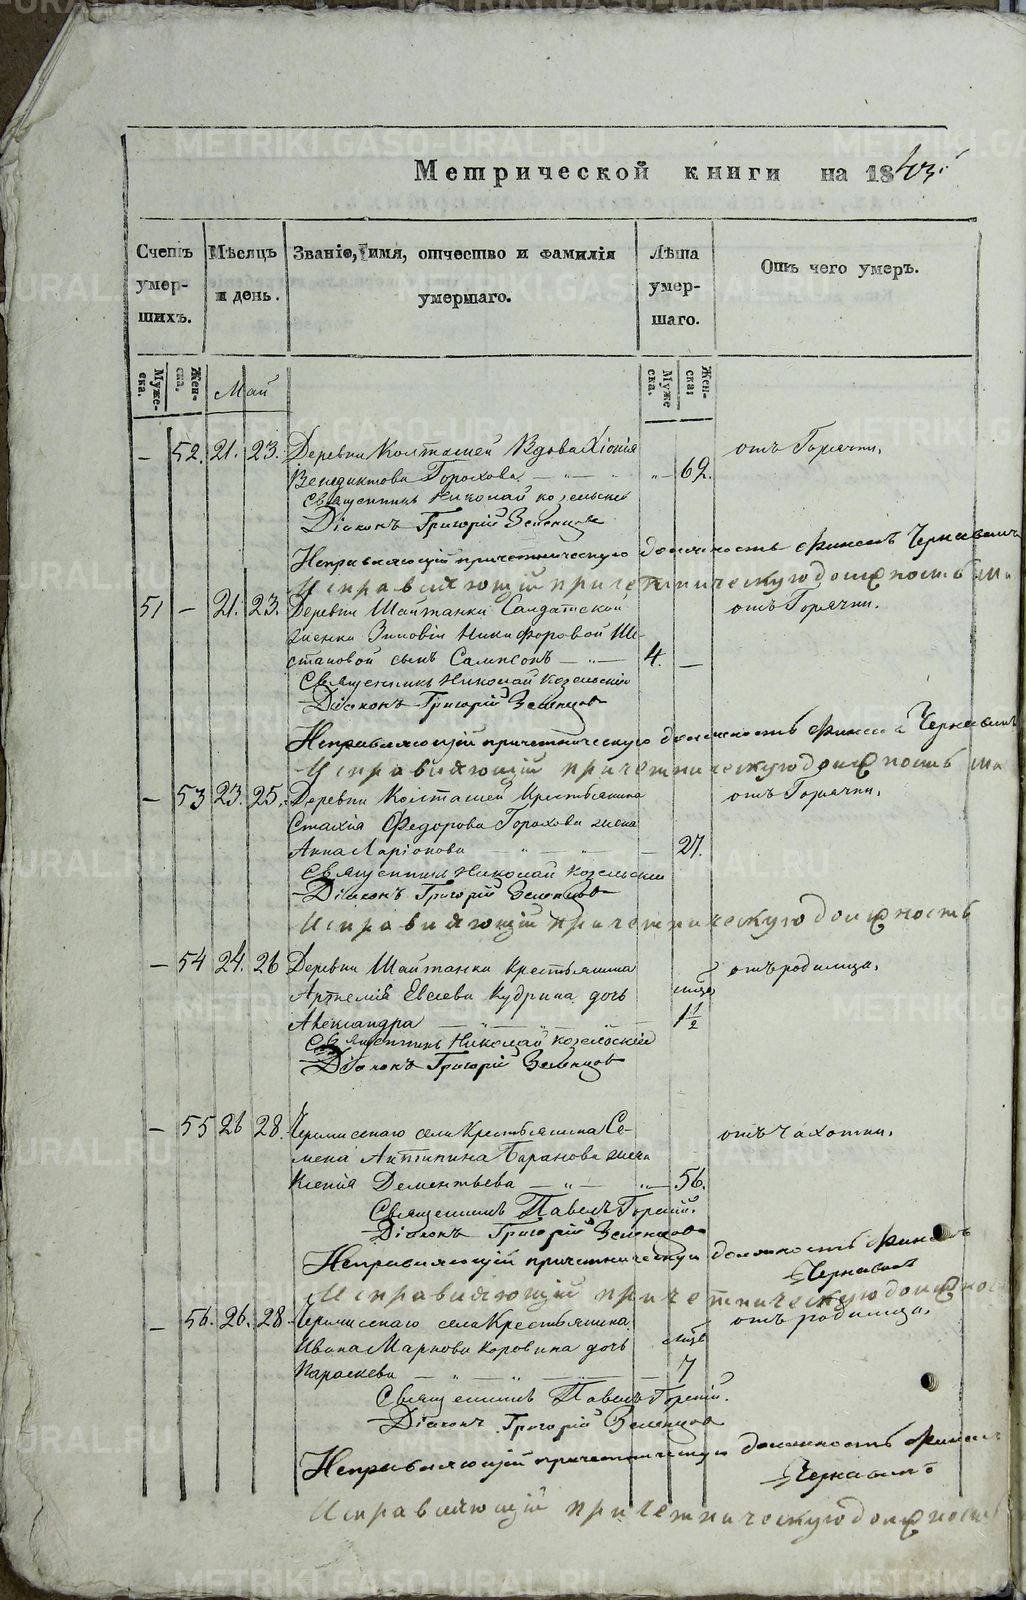 Метрической книги на 18
Счетъ умершихъ.
Мѣсяцъ и день.
Званіе, имя, отчество и фамилія умершаго.
Лѣта умершаго.
Отъ чего умеръ.
Мужеска.
Женска.
Май
Мужеска.
Женска:
— 52. 21. 23. Деревни Колташей Вдова Хіонія отъ Горячки.
Венедиктова Горохова — „ — „ „— 62.
Священникъ Николай Козельскій
Діаконъ Григорій Зеленцовъ
Исправляющій причетническую должность Финеесъ Чернавинъ
Исправляющій причетническую должность
51 — 21. 23. Деревни Шайтанки Салдатской отъ Горячки.
женки Зиновіи Никифоровой Ше-
становой сынъ Сампсонъ — „ — 4. —
Священникъ Николай Козельскій
Діаконъ Григорій Зеленцовъ
Исправляющій причетническую должность Чернавинъ
Исправляющій причетническую должность
— 53 23. 25. Деревни Колташей Крестьянина отъ Горячки.
Стахія Федорова Горохова жена
Анна Ларіонова — „ — „ — 27.
Священникъ Николай Козельскій
Діаконъ Григорій Зеленцовъ
Исправляющій причетническую должность
— 54 24. 26 Деревни Шайтанки Крестьянина отъ родимца.
Артемія Евсеева Кудрина дочь
Александра — „ — „ — 1 1/2
Священникъ Николай Козельскій
Діаконъ Григорій Зеленцовъ
— 55 26 28. Черемисскаго села Крестьянина Се- отъ Чахотки.
мена Антипина Баранова жена
Ксенія Дементьева — „ — „— 56.
Священникъ Павелъ Горный.
Діаконъ Григорій Зеленцовъ
Исправляющій причетническую должность
Чернавинъ
Исправляющій причетническую должность
— 56. 26. 28. Черемисскаго села Крестьянина отъ родимца.
Ивана Маркова Коровина дочь
Параскева — „ — „ — 7
Священникъ Павелъ Горный.
Діаконъ Григорій Зеленцовъ
Исправляющій причетническую должность
Чернавинъ
Исправляющій причетническую должность
METRIKI.GASO-URAL.RU